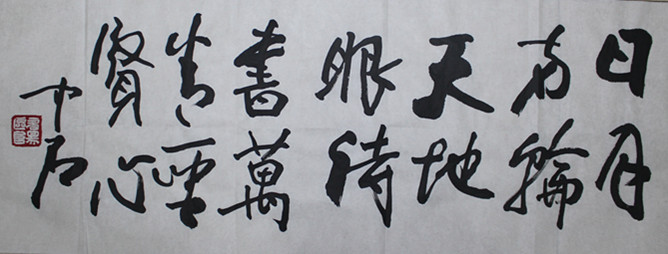 日月
两輪
天地
眼诗
書萬
卷聖
賢心
中石